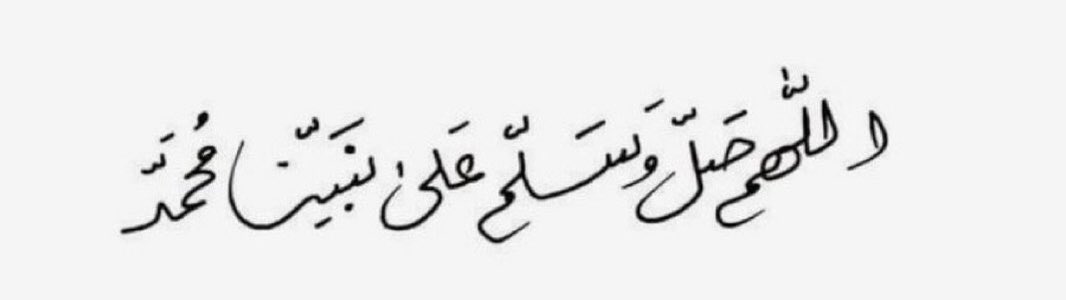 اللَّهم صَلِّ وَسَلِّم عَلىٰ نَبَيِّنا مُحمَّد